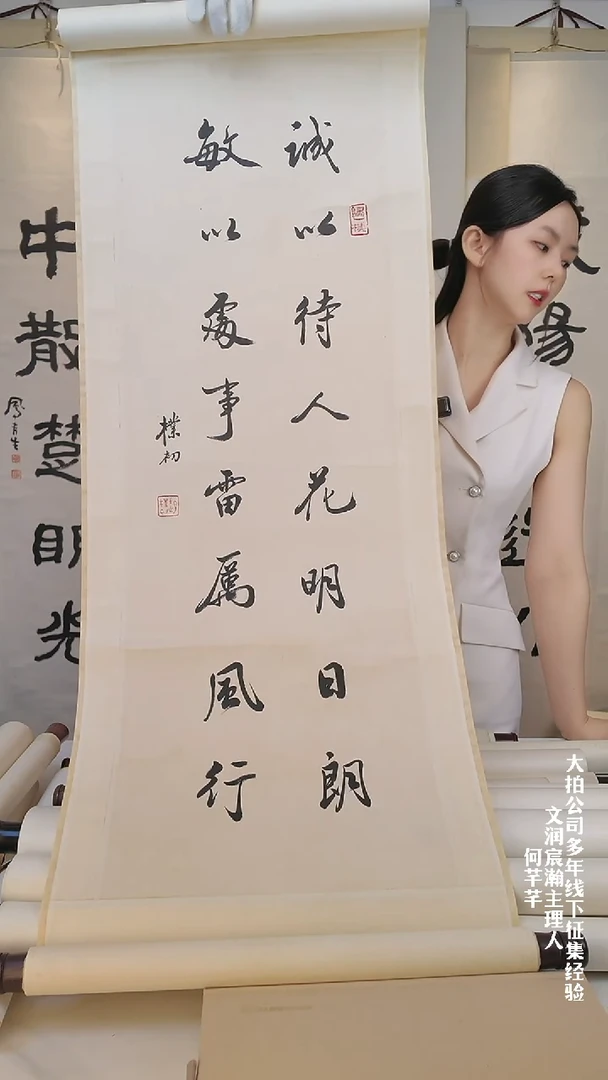 誠以待人花明日朗
敏以處事雷厲風行
樸初
中散楚明光
鳳青生
陽
大拍公司多年线下征集经验
文润宸瀚主理人
何芊芊